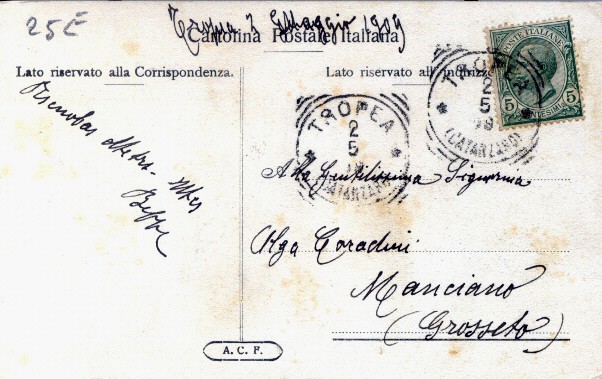 25£
Tropea 2 Maggio 1909
Cartolina Postale Italiana
Lato riservato alla Corrispondenza.
Lato riservato all'indirizzo
POSTE ITALIANE
5 5
CENTESIMI
TROPEA
2
5
09
(CATANZARO)
TROPEA
2
5
09
(CATANZARO)
Beppe
Alla Gentilissima Signorina
Olga Coradini
Manciano
(Grosseto)
A. C. F.